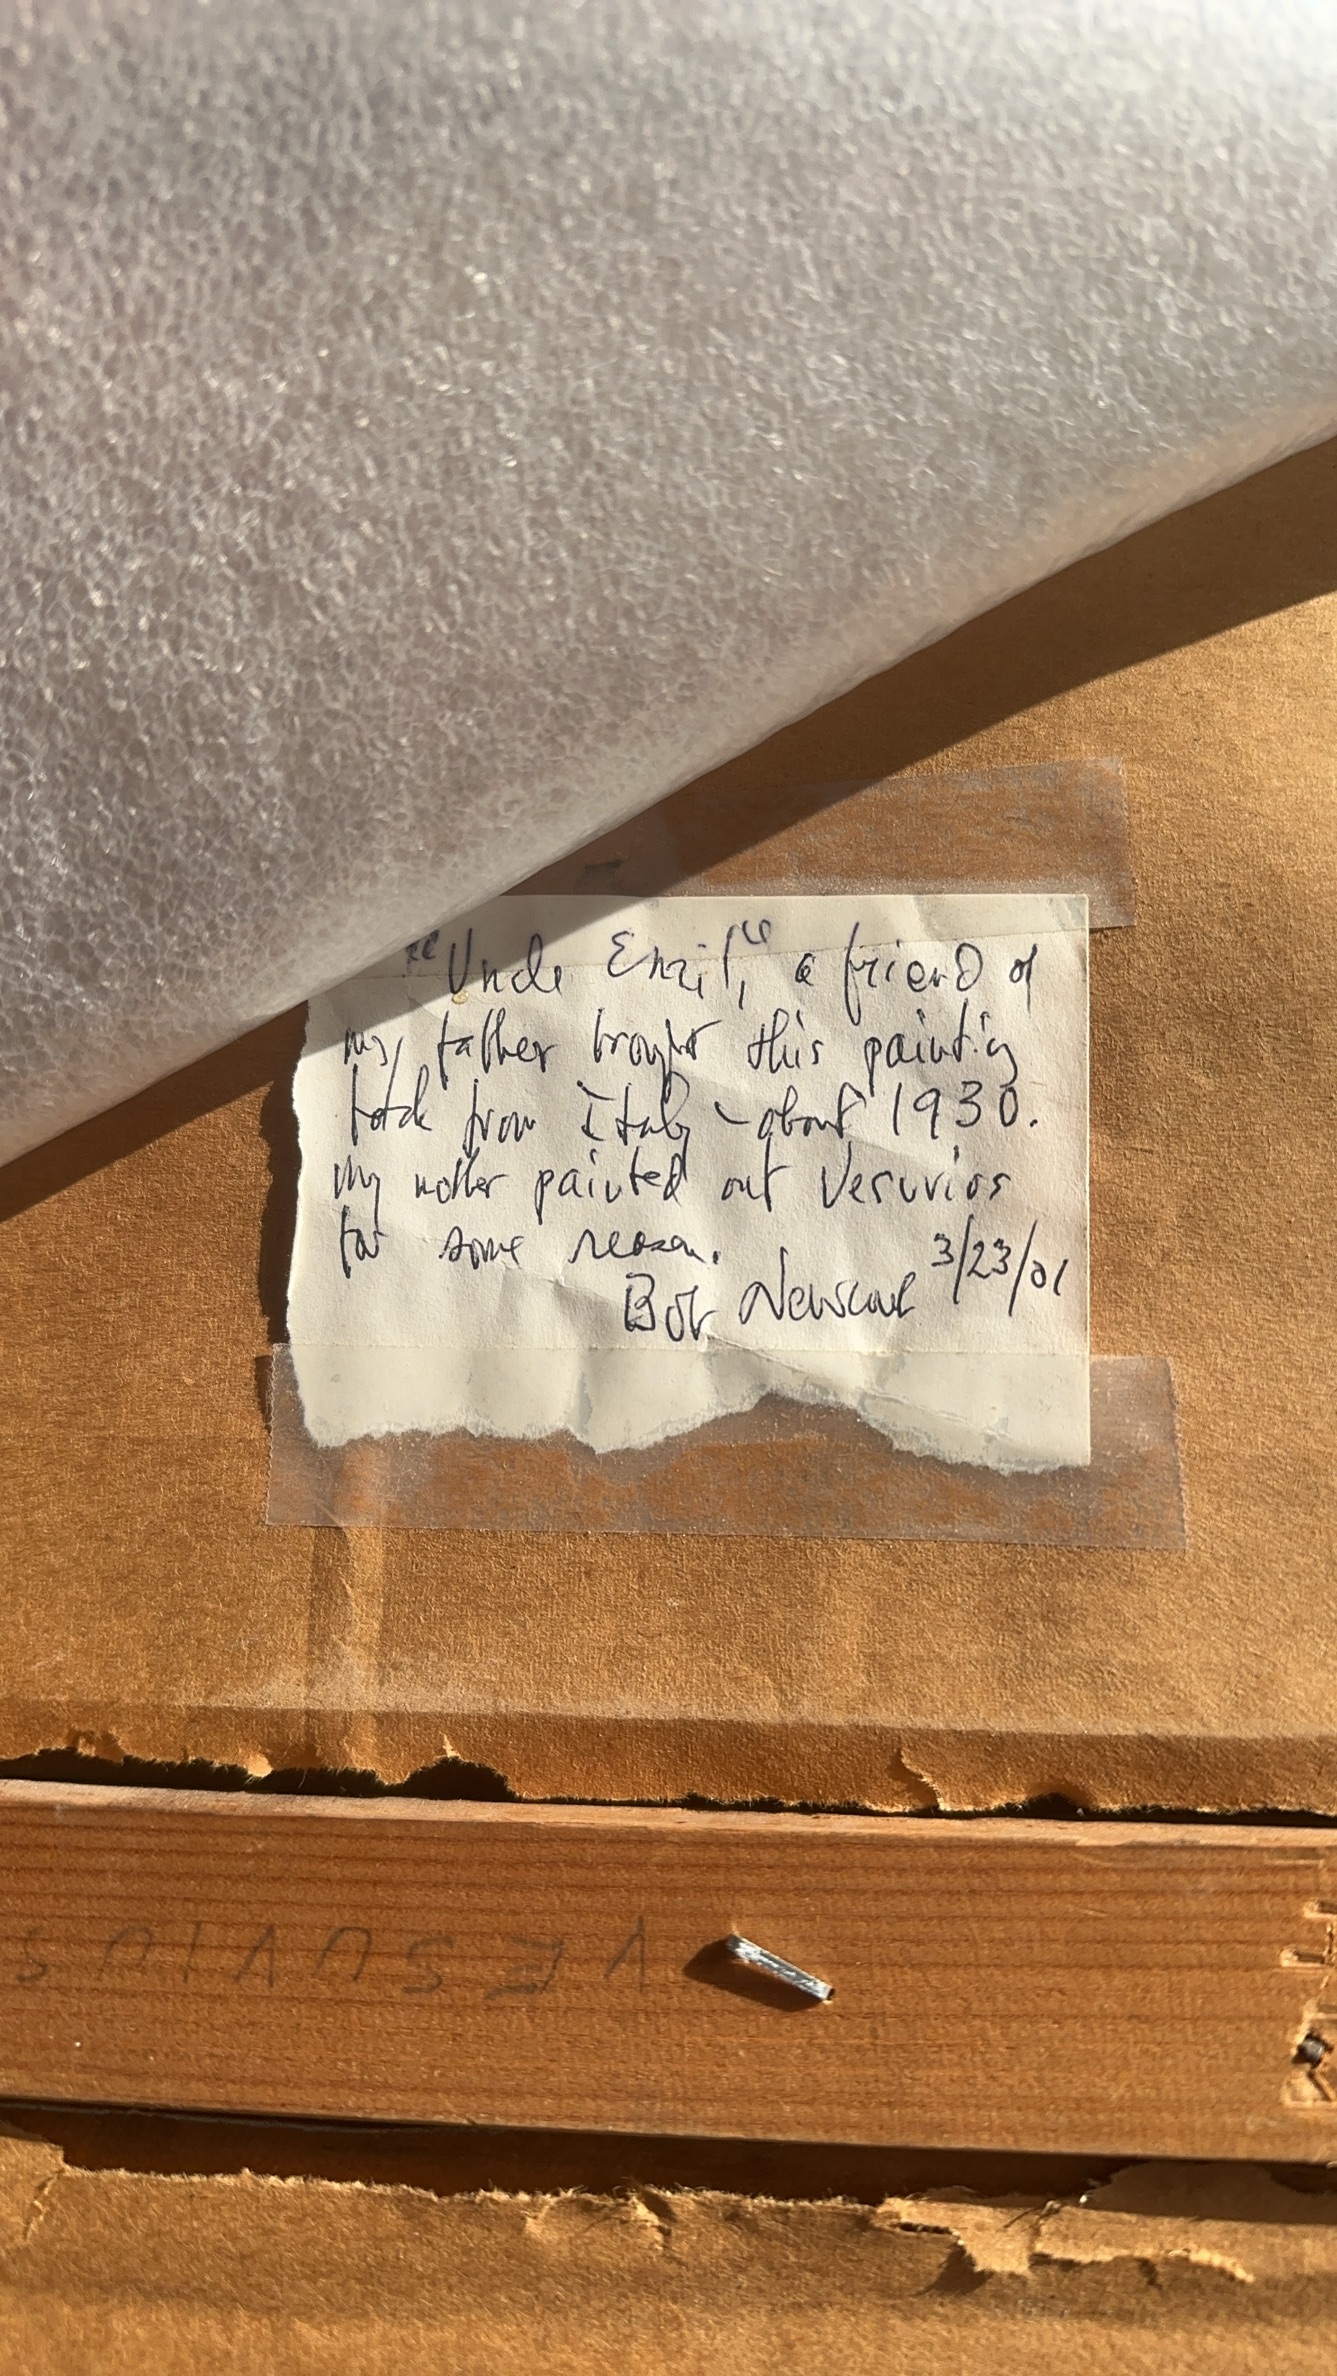 "Uncle Emil", a friend of
my father brought this painting
back from Italy - about 1930.
My mother painted out Vesuvios
for some reason.
3/23/01
Bob
VESUVIUS